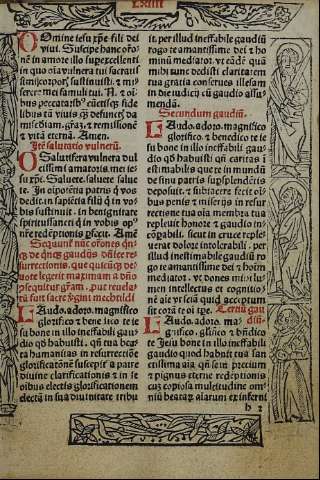 Lxxiii
O Domine iesu xp̄e fili dei
viui. Suscipe hanc oro⸗
nē in amore illo supexcellenti
in quo oīa vulnera tui sacratis
simi corporꝭ sustinuisti. ꝫ mi
serere mei famuli tui. N. ꝫ oī
bus peccatoribꝰ cūctisqꝫ fide
libus tā viuis qꝫ defunctꝭ da
misc̄diam, grāꝫ, ꝫ remissionē
ꝫ vitā eternā. Amen.
Itē salutatio vulnerū.
O Salutifera vulnera dul
cissimi amatoris mei ie⸗
su xp̄e. Saluete, saluete salue
te. In oīpotētia patris q̇ vos
dedit. in sapiētia filij q̇ in vo
bis sustinuit. in benignitate
spiritussancti q̇ in vobis op̄⸗
tus redēptionis
Sequunt̄ nūc orōnes
de gaudijs dn̄ice re⸗
surrectionis, que quicūqꝫ de⸗
uote legerit maximam a dn̄o
cōsequitur gram. put reuela⸗
tū fuit sacre Mechtildi
L Audo. adoro. magnifico
glorifico ꝫ bene dico te ie
su bone in illo ineffabili gau⸗
dio qd̄ habuisti. qn̄ tua bea⸗
ta humanitas in resurrectiōe
glorificationē suscepit a patre
diuine clarificationis ꝫ in se
oibus electis glorificationem
electā in sua diuinitate tribu
it. per illud ineffabile gaudiū
rogo te amantissime dei ꝫ ho
minū mediator. vt eādē quā
mihi tunc dedisti claritatem
tua gratia conserues illesam
in die iudicij cū gaudio assu⸗
mendā.
Secundum gaudiū.
L Audo. adoro. magnifico
glorifico. ꝫ benedico te ie
su bone in illo ineffabili gau⸗
dio qd̄ habuisti qn̄ caritas ī
estimabilis que te in mundū
de sinu patris supsplendētis
deposuit. ꝫ subiacere fecit oī
bus penis ꝫ miserijs in resur
rectione tua oīa membra tua
repleuit honore ꝫ gaudio in⸗
cōpabili. sicut in cruce reple⸗
uerat dolore intolerabili. per
illud inestimabile gaudiū ro
go te amantissime dei ꝫ hoīm
mediator. vt dones mihi lu⸗
men intellectus ꝫ cognitio⸗
nē aīe vt sciā quid acceptum
sit corā te oī tpe.
Tertiū gau
diū.
L Audo. adoro. ma⸗
gnifico. glifico. ꝫ bn̄dico
te Jesu bone in illo ineffabili
gaudio quod habuit tua san
ctissima aīa. qn̄ se in precium
ꝫ pignus eterne redēptionis
cuꝫ copiosa multitudine om⸗
niū beataꝝ alarum ex inferni
h 2